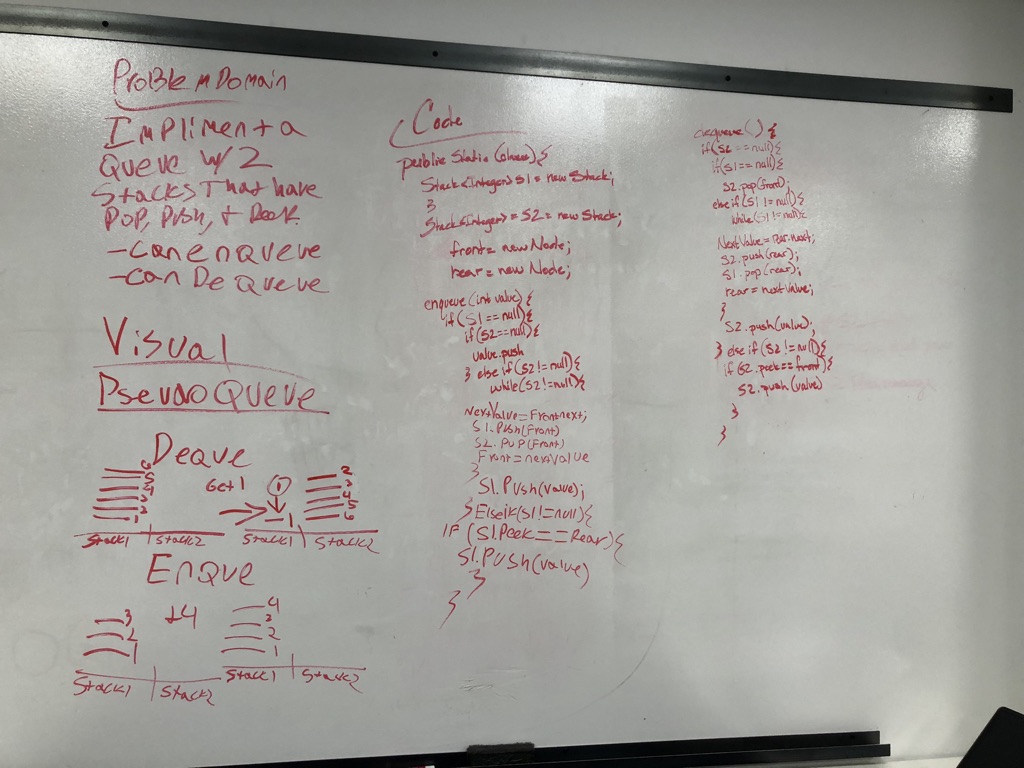 Problem Domain
Impliment a
Queue w/ 2
Stacks That have
Pop, Push, + Peek
- Can enqueue
- Can DeQueue
Visual
PseudoQueue
Deque
6
5
4
3
2
1
Stack1 Stack2
Get 1
1
1
2
3
4
5
6
Stack1 Stack2
Enque
3
2
1
Stack1 Stack2
+4
4
3
2
1
Stack1 Stack2
Code
public static (queue) {
Stack<integer> S1 = new Stack;
}
Stack<integer> = S2 = new Stack;
front = new Node;
rear = new Node;
enqueue (int value) {
if (S1 == null) {
if (S2 == null) {
value.push
} else if (S2 != null) {
while (S2 != null) {
NextValue = Front.next;
S1.Push(Front)
S2.Pop(Front)
Front = nextValue
}
S1.Push(value);
} Else if (S1 != null) {
IF (S1.Peek == Rear) {
S1.Push(value)
}
}
dequeue() {
if (S2 == null) {
if (S1 == null) {
S2.pop(front);
else if (S1 != null) {
while (S1 != null) {
NextValue = rear.next;
S2.push(rear);
S1.pop(rear);
rear = nextValue;
}
S2.push(value);
} else if (S2 != null) {
if (S2.peek == front) {
S2.push(value)
}
}